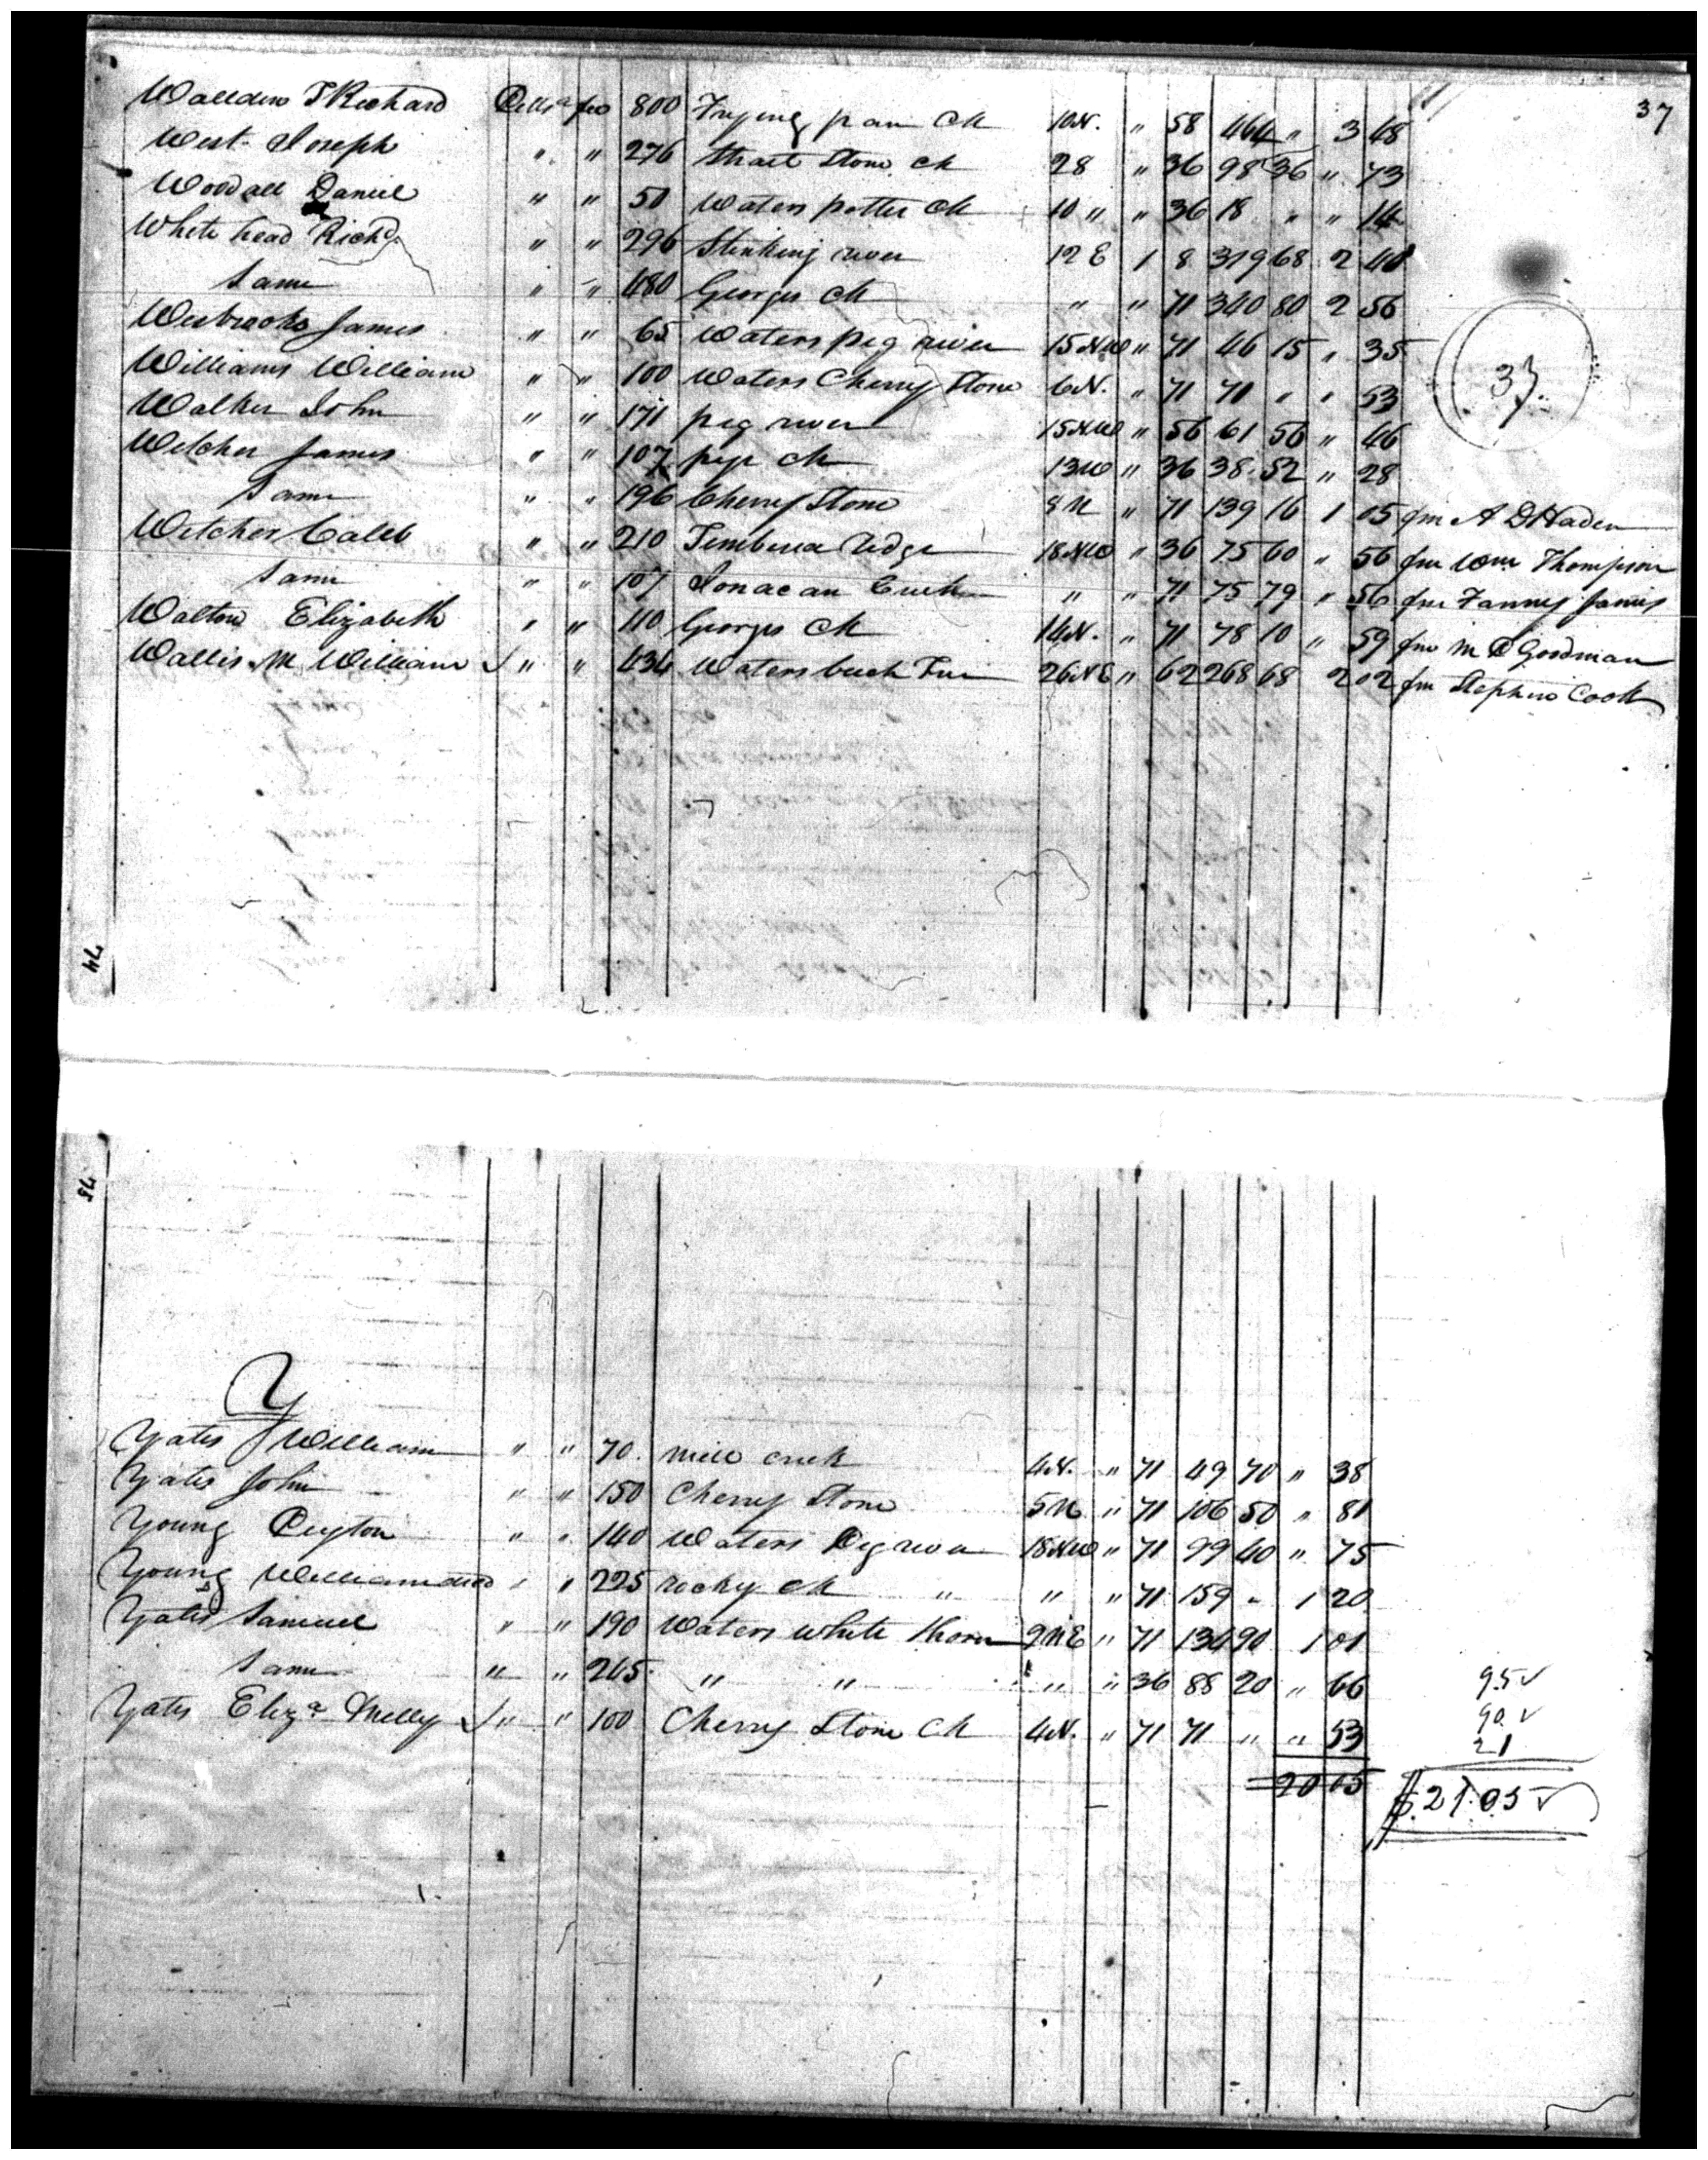 37
Wallden T Richard Pittsa fee 800 Frying pan Ck 10 N. " 58 464 " 3 48
West Joseph " " 276 Strait Stone Ck 28 " 36 98 36 " 73
Woodall Daniel " " 50 Waters potter Ck 10 " " 36 18 " " 14
White head Richd. " " 296 Stinking river 12 E 1 8 319 68 2 40
Same " " 480 Georges Ck " " 71 340 80 2 56
Wesbrooks James " " 65 Waters pig river 15 NW " 71 46 15 " 35
Williams William " " 100 Waters Cherry Stone 6 N. " 71 71 " " 53
Walker John " " 171 pig river 15 NW " 56 61 56 " 46
Witcher James " " 107 Ck 13 W " 36 38 52 " 28
Same " " 196 Cherry Stone 8 N " 71 139 16 1 05 fm A D Haden
Witcher Caleb " " 210 Ridge 18 NW " 36 75 60 " 56 fm Wm Thompson
Same " " 107 Creek " " 71 75 79 " 56 fm Fanny James
Walton Elizabeth " " 110 Georges Ck 14 N. " 71 78 10 " 59 fm M D Goodman
Wallis M William √ " " 434 Waters 26 NE " 62 268 68 2 02 fm Stephen Cook
37.
74
75
Y
Yates William " " 70. mill creek 4 N. " 71 49 70 " 38
Yates John " " 150 Cherry Stone 5 N " 71 106 50 " 81
Young Peyton " " 140 Waters Pig river 18 NW " 71 99 40 " 75
Young William " " 225 rocky Ck " " " 71 159 " 1 20
Yates Samuel " " 190 Waters white thorn 9 NE " 71 134 90 1 01
Same " " 245 " " " " 36 88 20 " 66
95 √
Yates Eliza & Milly √ " " 100 Cherry Stone Ck 4 N. " 71 71 " " 53
90 √
21
20 05
$.21.05 √